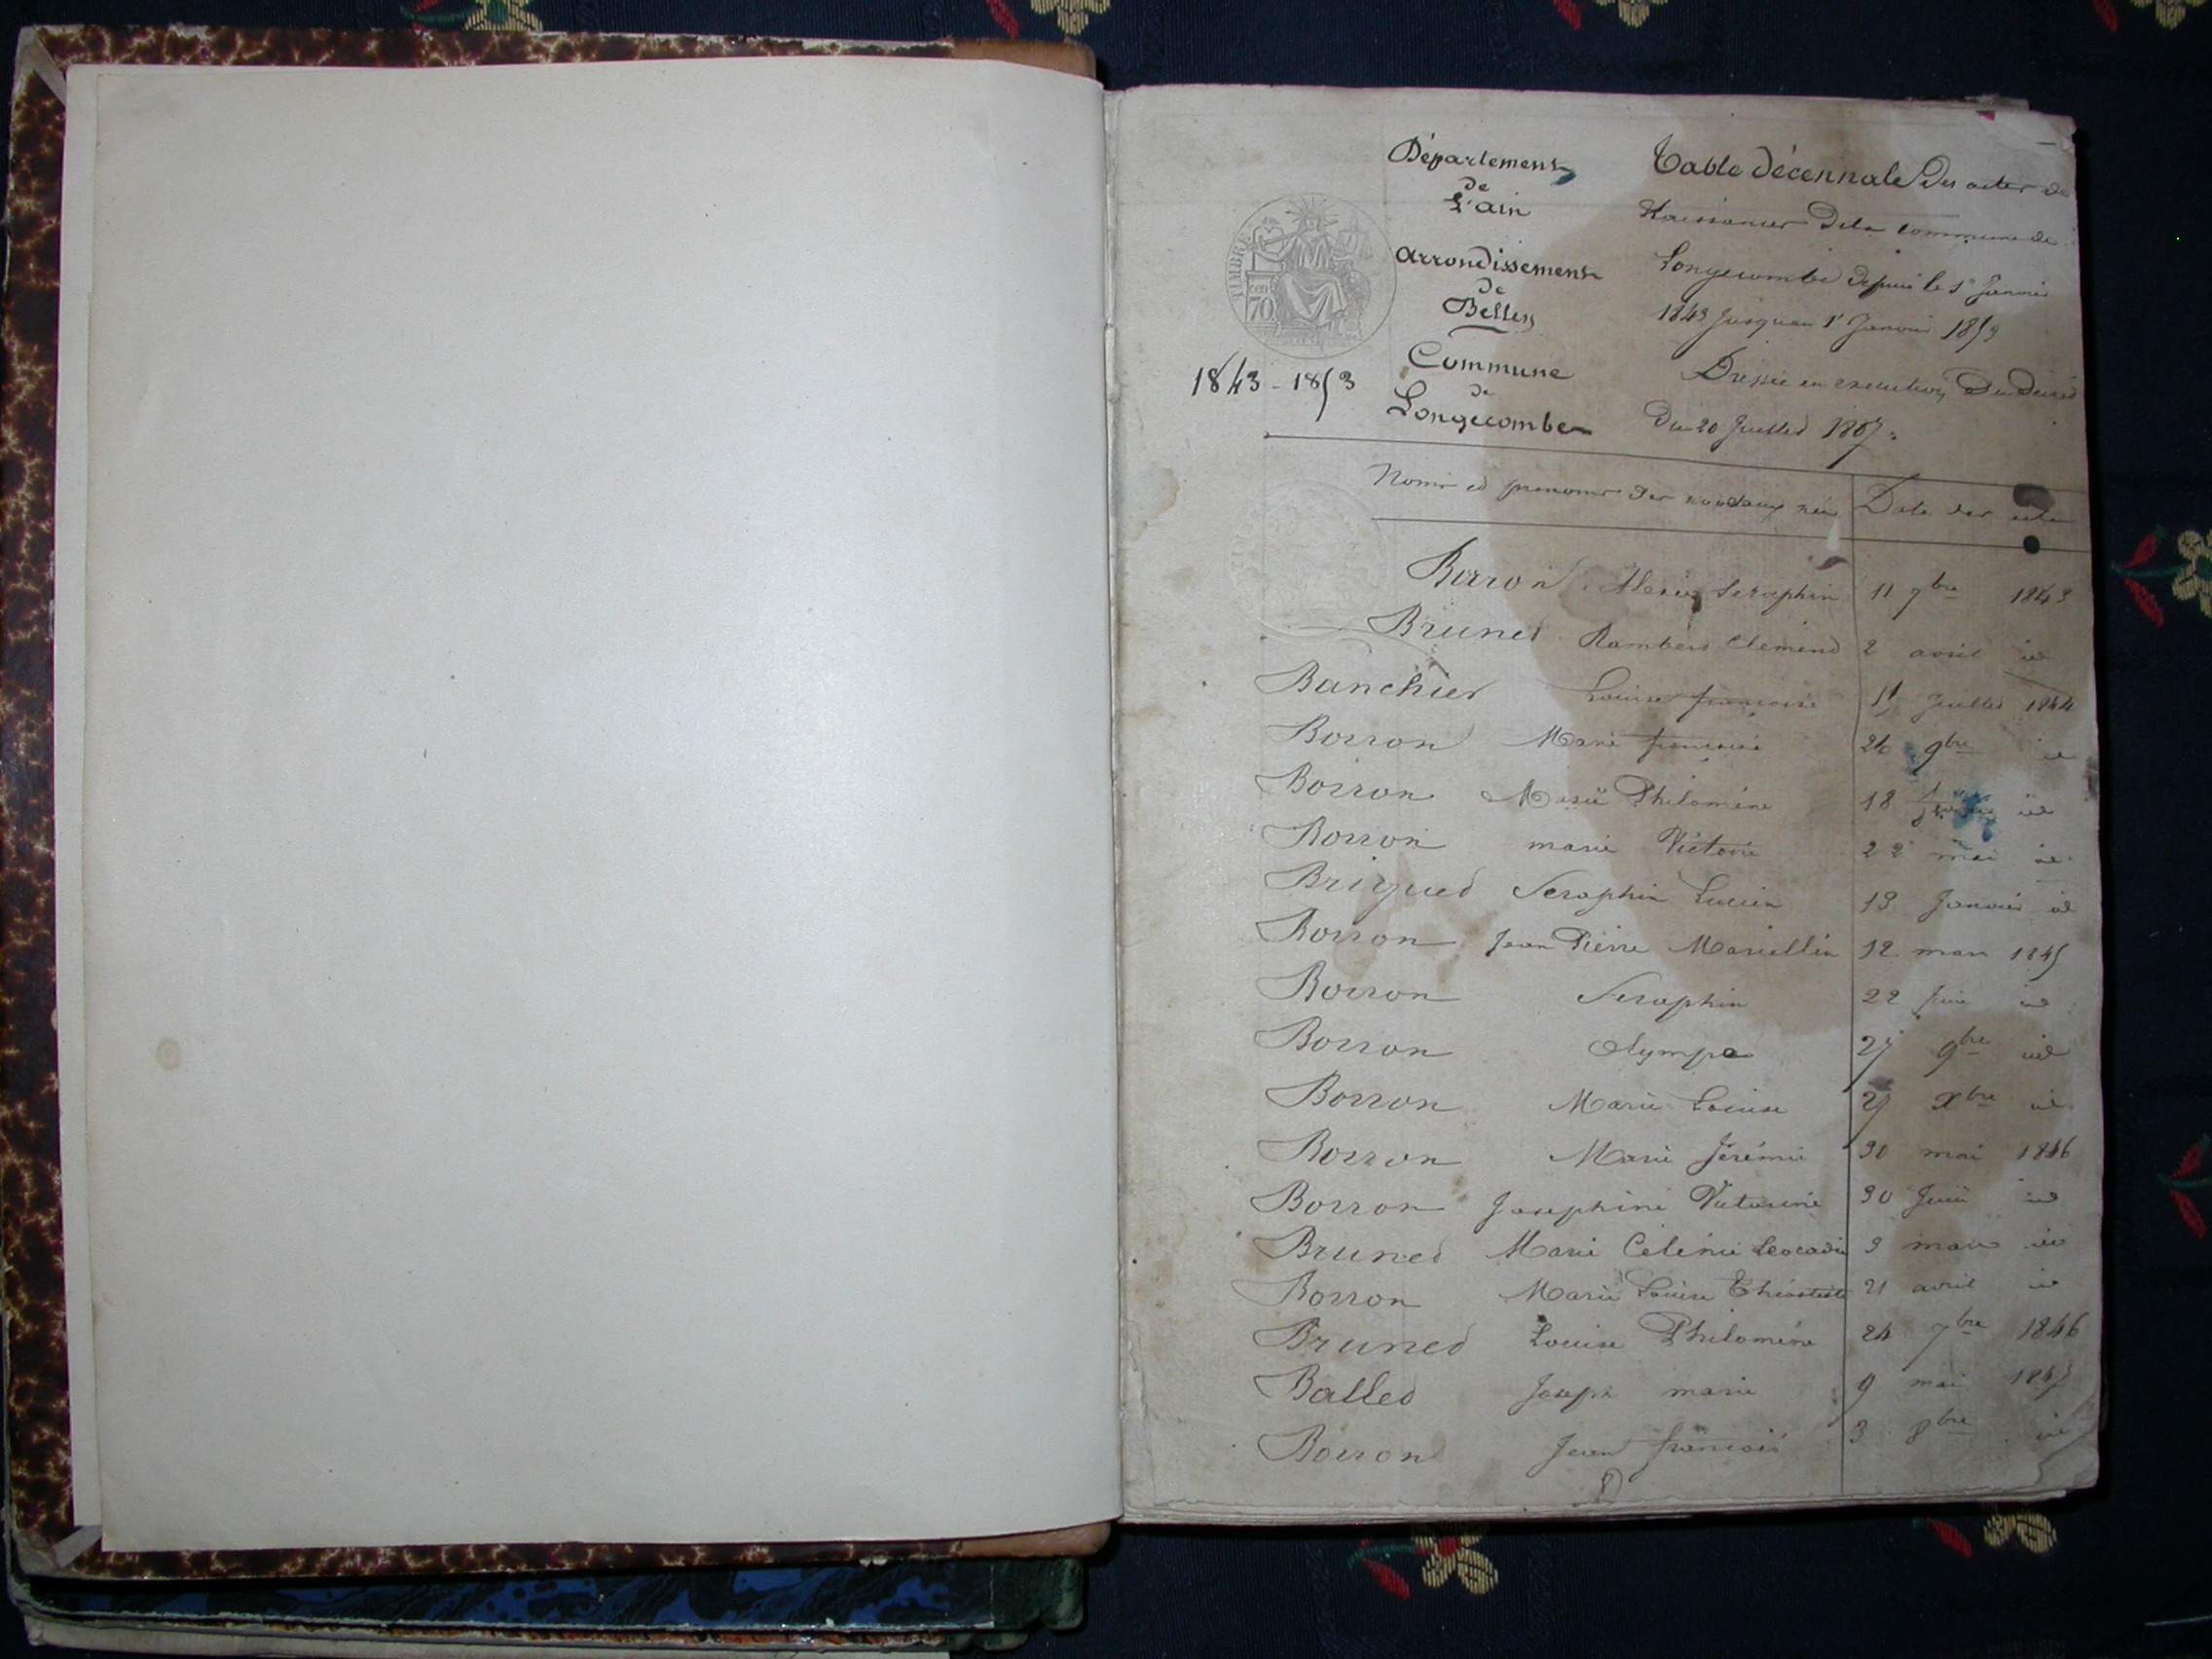 Département
de
L'ain
Arrondissement
de
Belley
Commune
de
Longecombe
1843 - 1853
TIMBRE
cen
70
Table décennale Des actes de
Naissances De la commune de
Longecombe depuis le 1er Janvier
1843 Jusquau 1r Janvier 1853
Dressée en execution Du Decret
Du 20 Juillet 1807.
Noms et prenoms des nouveaux nés Date des actes
Borron Alexis Seraphin 11 7bre 1843
Brunet Rambert Clement 2 avril id
Banchier Louise francoise 11 Juillet 1844
Borron Marie francoise 26 9bre id
Borron Marie Philomène 18 id
Borron marie Victoire 22 mai id
Briqued Seraphin Lucien 19 Janvier id
Borron Jean Pierre Marcellin 12 mars 1845
Borron Seraphin 22 Juin id
Borron Olympe 27 9bre id
Borron Marie Louise 27 Xbre id
Borron Marie Jérémie 30 mai 1846
Borron Josephine Victorine 30 Juin id
Bruned Marie Celénie Leocadie 9 mars id
Borron Marie Louise 21 avril id
Bruned Louise Philomène 24 7bre 1846
Balled Joseph marie 9 mai 1847
Borron Jean francois 3 8bre id